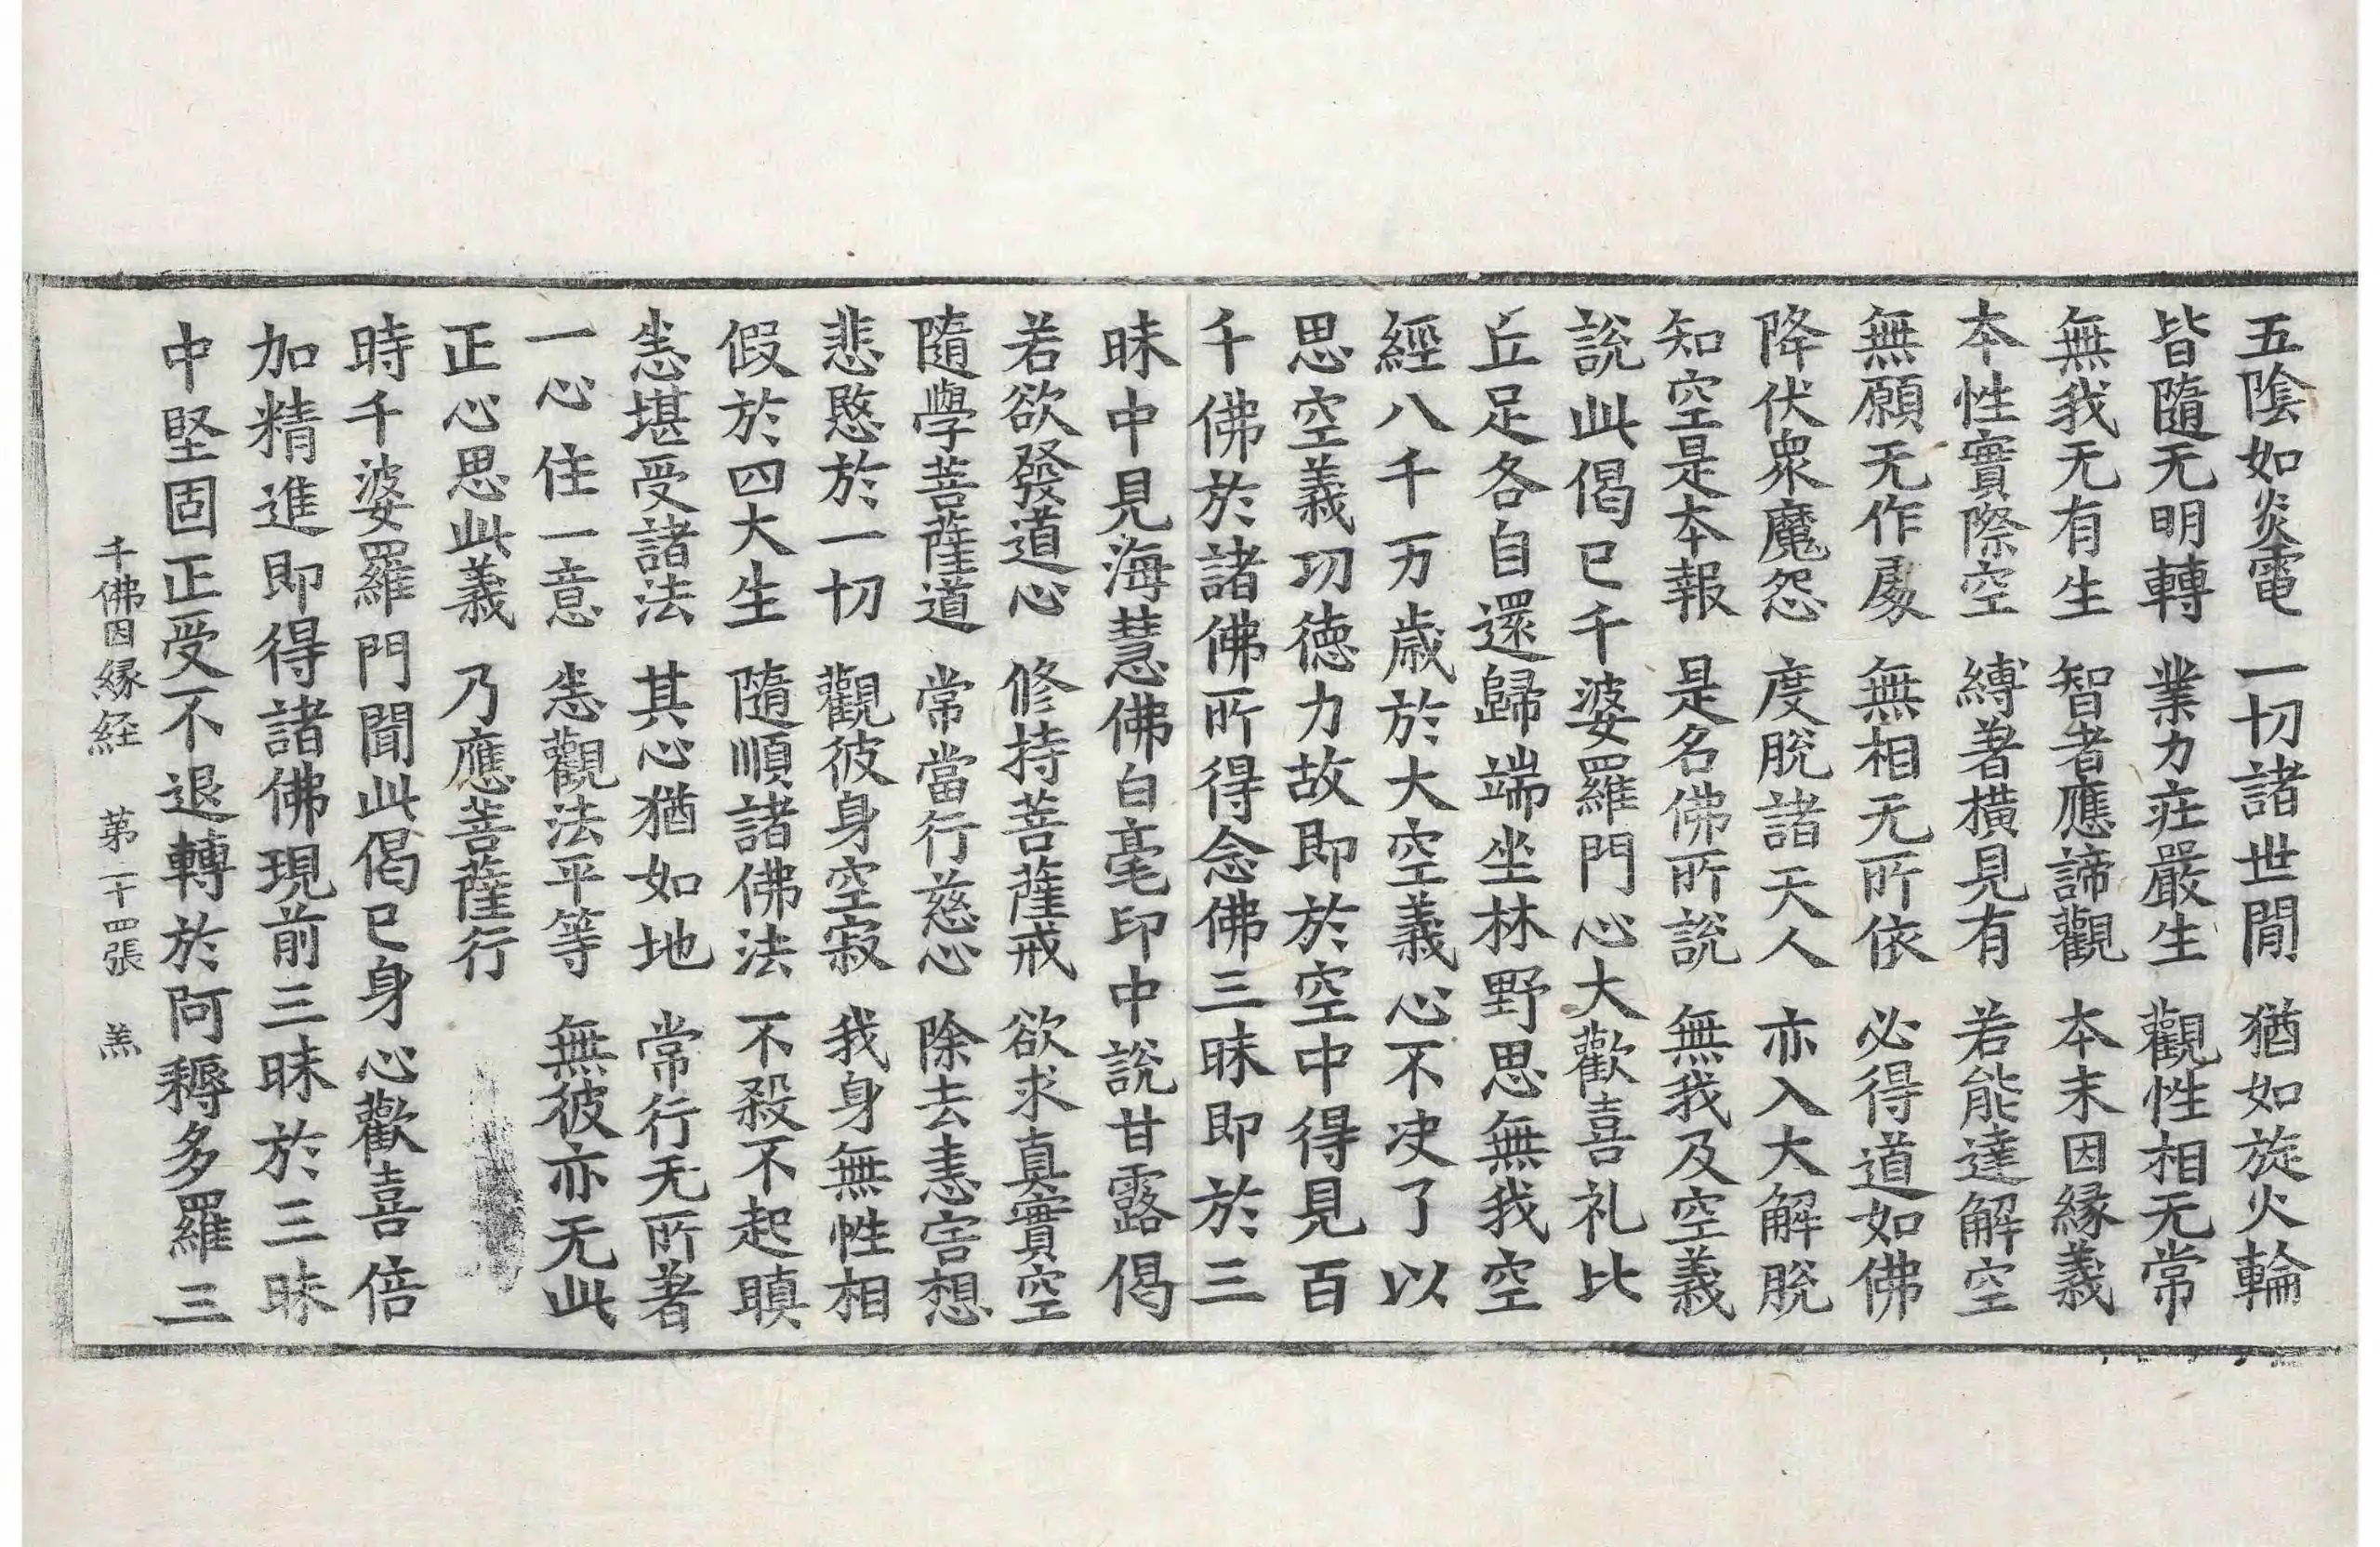 五陰如炎電　一切諸世間　猶如旋火輪
皆隨无明轉　業力莊嚴生　觀性相无常
無我无有生　智者應諦觀　本末因緣義
本性實際空　縛著橫見有　若能達解空
無願无作處　無相无所依　必得道如佛
降伏衆魔怨　度脫諸天人　亦入大解脫
知空是本報　是名佛所說　無我及空義
說此偈已千婆羅門心大歡喜礼比
丘足各自還歸端坐林野思無我空
經八千万歲於大空義心不决了以
思空義功德力故即於空中得見百
千佛於諸佛所得念佛三昧即於三
昧中見海慧佛白毫印中說甘露偈
若欲發道心　修持菩薩戒　欲求真實空
隨學菩薩道　常當行慈心　除去恚害想
悲愍於一切　觀彼身空寂　我身無性相
假於四大生　隨順諸佛法　不殺不起瞋
悉堪受諸法　其心猶如地　常行无所著
一心住一意　悉觀法平等　無彼亦无此
正心思此義　乃應菩薩行
時千婆羅門聞此偈已身心歡喜倍
加精進即得諸佛現前三昧於三昧
中堅固正受不退轉於阿耨多羅三
千佛因緣経　第二十四張　羔